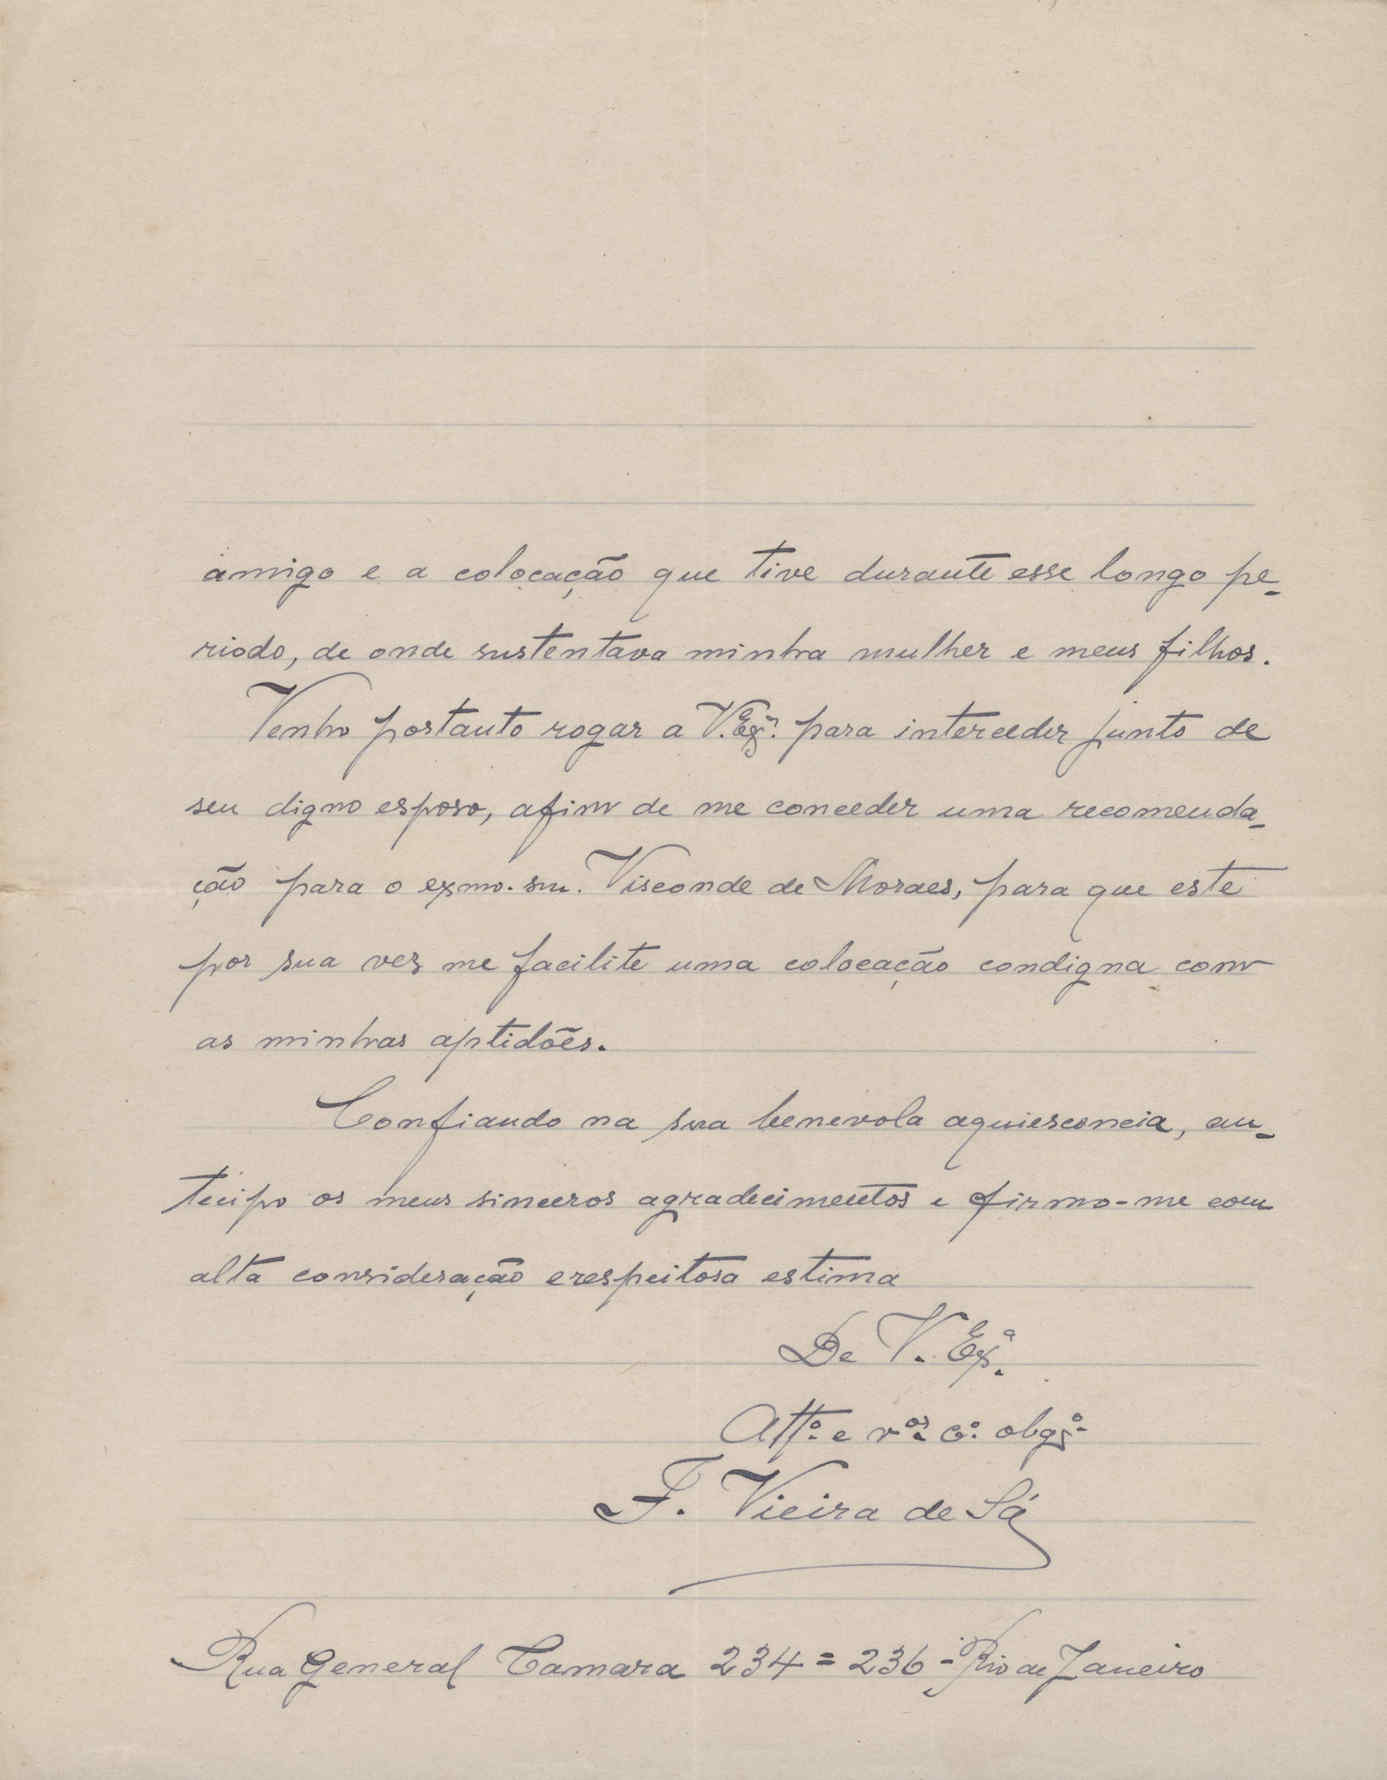 amigo e a colocação que tive durante esse longo pe-
riodo, de onde sustentava minha mulher e meus filhos.
Venho portanto rogar a V. Exª. para interceder junto de
seu digno esposo, afim de me conceder uma recomenda-
ção para o exmo. snr. Visconde de Moraes, para que este
por sua vez me facilite uma colocação condigna com
as minhas aptidões.
Confiando na sua benevola aquiesconcia, an-
tecipo os meus sinceros agradecimentos e firmo-me com
alta consideração e respeitosa estima
De V. Exª.
Attº. e vºr. cº. obgº.
F. Vieira de Sá
Rua General Camara 234 = 236 - Rio de Janeiro